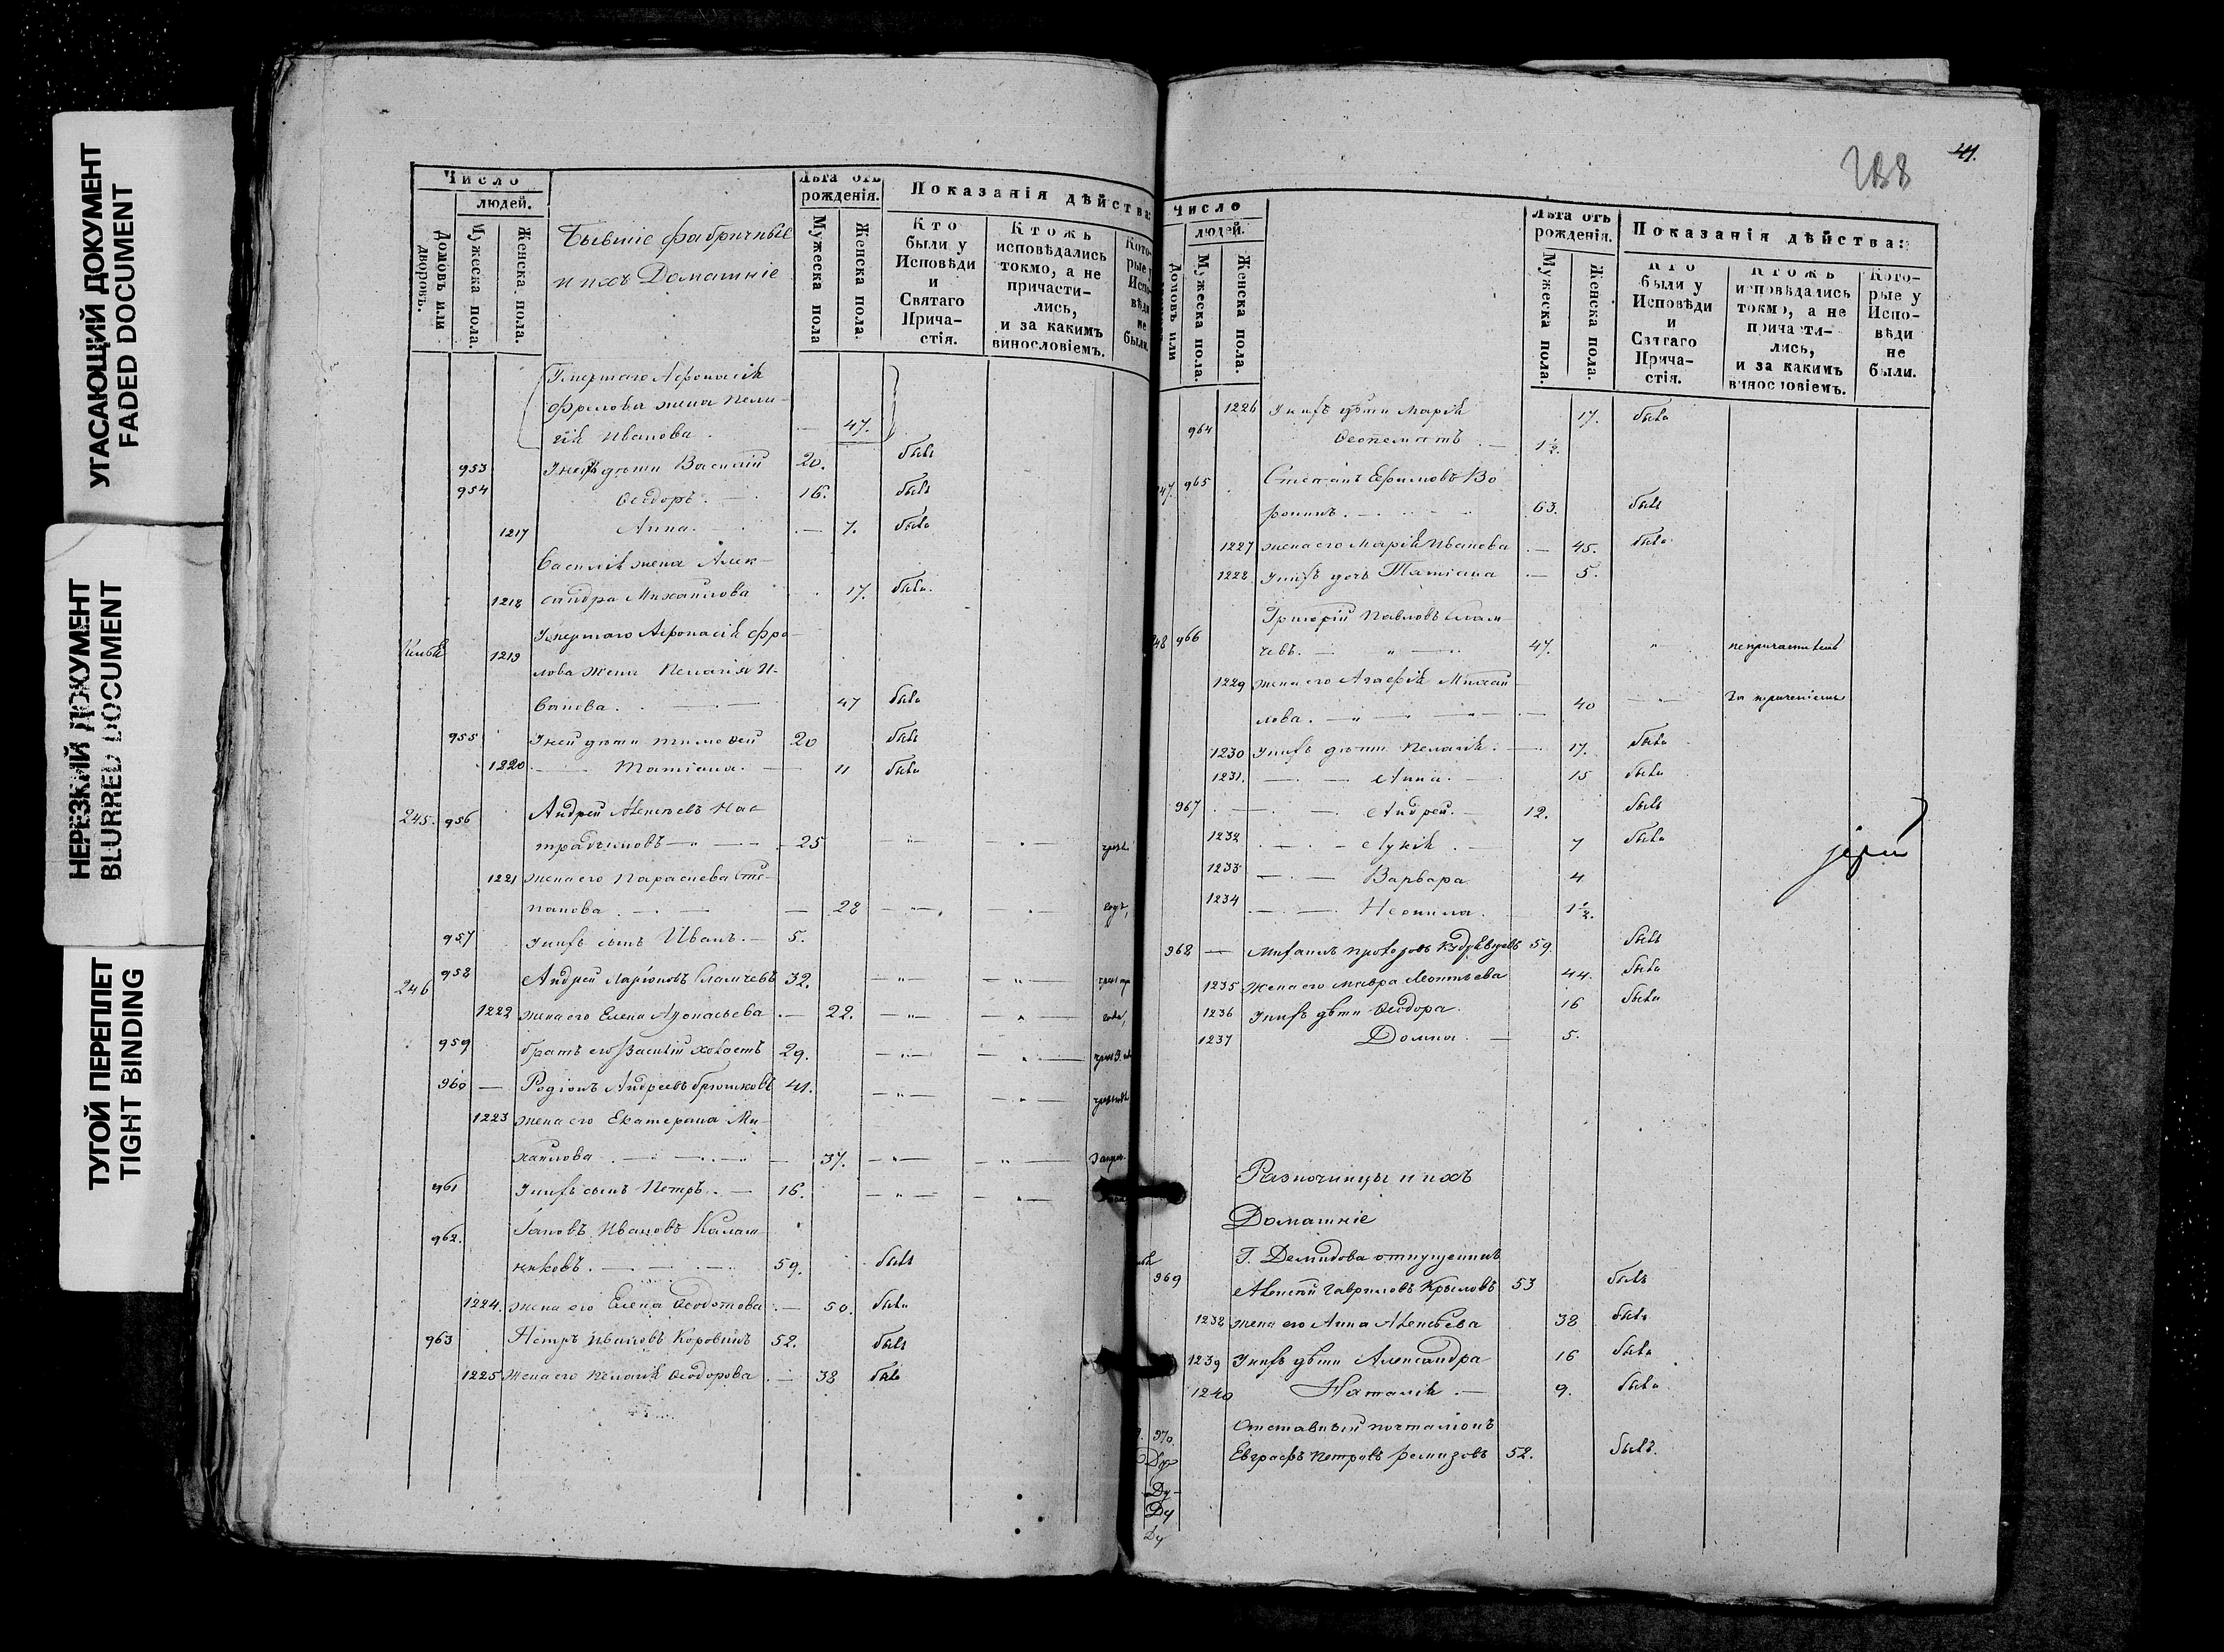 УГАСАЮЩИЙ ДОКУМЕНТ
FADED DOCUMENT
НЕРЕЗКИЙ ДОКУМЕНТ
BLURRED DOCUMENT
ТУГОЙ ПЕРЕПЛЕТ
TIGHT BINDING
Число
людей.
Домовъ или дворовъ.
Мужеска пола.
Женска пола.
Бывшіе фабричные
и ихъ Домашніе
Лѣта отъ рожденія.
Мужеска пола
Женска пола.
Показанія дѣйства:
Кто были у Исповѣди и Святаго Прича- стія.
Ктожъ исповѣдались токмо, а не причасти- лись, и за какимъ винословіемъ.
Кото- рые у Испо- вѣди не были.
Умершаго Афонасія
Фролова жена Пела-
гія Иванова . — 47.
953 Унея дѣти Василій 20. былъ
954 Ѳеодоръ. — 16. былъ
1217 Анна. — 7. была
Василія жена Алек-
1218 сандра Михаилова 17. была.
1219 Умершаго Афонасія Фро-
лова жена Пелагія И-
ванова . — 47 была
955 Уней дѣти Тимоѳей 20 былъ
1220 — Татіана. — 11 была
245. 956 Андрей Алексѣевъ
— 25
1221 жена его Параскева Сте-
панова . — 28
957 Унихъ сынъ Иванъ. — 5.
246 958 Андрей Ларіоновъ 32.
1222 жена его Елена Афонасьева — 22.
959 братъ его Василій холостъ 29.
960 — Родіонъ Андреевъ 41.
1223 жена его Екатерина Ми-
хаилова . — 37.
961 Унихъ сынъ Петръ. — 16.
962. Ивановъ Калаш-
никовъ. — 59. былъ
1224. жена его Елена Ѳеодотова — 50. была
963 Петръ Ивановъ Коровинъ 52. былъ
1225 Жена его Пелагія Ѳеодорова . — 38 была
288
41.
Число
людей.
Домовъ или
Мужеска пола.
Женска пола.
Лѣта отъ рожденія.
Мужеска пола.
Женска пола.
Показанія дѣйства:
Кто были у Исповѣди и Святаго Прича- стія.
Ктожъ исповѣдались токмо, а не причасти- лись, и за какимъ винословіемъ.
Кото- рые у Испо- вѣди не были.
1226 Унихъ дѣти Марія 17. была
964 Ѳеопемптъ . — 1½.
47. 965 Степанъ Ефимовъ Во
ронинъ. — 63. былъ
1227 жена его Марія Иванова — 45. была
1228 Унихъ дочь Татіана — 5.
48 966 Григорій Павловъ
47.
1229 жена его Агафія Михаи
лова. — 40
1230 Унихъ дѣти Пелагія. — 17. была
1231. — Анна. — 15 была
967 — Андрей. — 12. былъ
1232 — Лукія — 7 была
1233 — Варвара 4
1234 — Неонила. 1½.
968 — Михаилъ Прохоровъ 59. былъ
1235 Жена его Мавра Леонтьева 44. была
1236 Унихъ дѣти Ѳеодора. 16 была
1237 Домна. — 5.
іерей
Разночинцы и ихъ
Домашніе
Г. Демидова отпущенникъ
969 Алексѣй Гавриловъ Крыловъ 53 былъ
1238 жена его Анна Алексѣева 38 была
1239 Унихъ дѣти Александра 16 была
1240 Наталія. — 9. была
Отставный почталіонъ
970. Евграфъ Петровъ Ремизовъ 52. былъ.